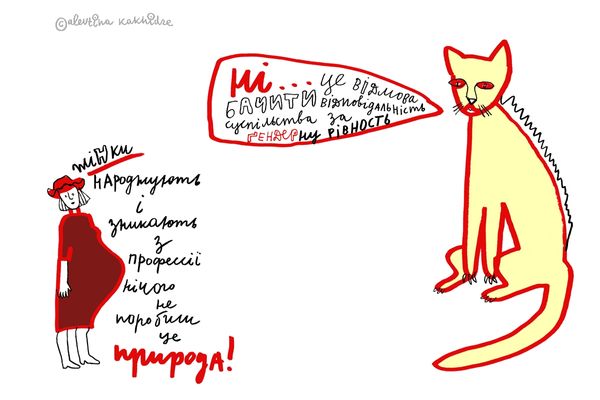 ©alevtina kakhidze
ні... це відмова
бачити відповідальність
суспільства за
ґендерну рівність
тітки
народжують
і
зникають
з
професії
нічого
не
поробиш
це
природа!